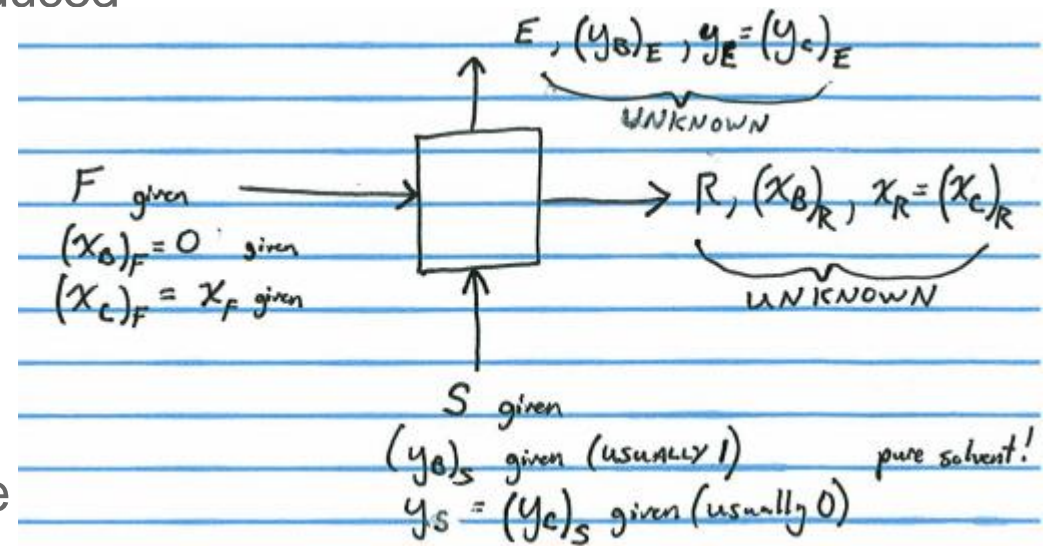 uced
E, (y_B)_E, y_E = (y_C)_E
UNKNOWN
F given
(x_B)_F = 0 given
(x_C)_F = x_F given
R, (x_B)_R, x_R = (x_C)_R
UNKNOWN
S given
(y_B)_S given (USUALLY 1) pure solvent!
y_S = (y_C)_S given (usually 0)
e